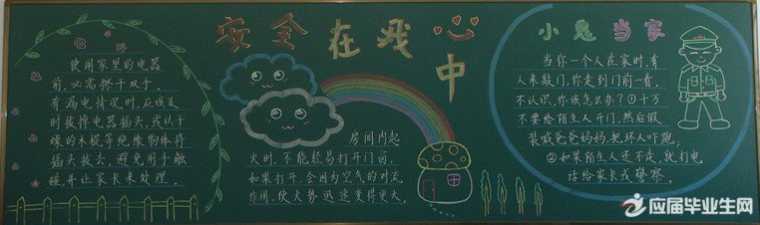 安全在我心中
使用家里的电器
前,必需擦干双手。
有漏电情况时,应该及
时拔掉电器插头,或以干
燥的木棍等绝缘物体将
插头拔去,避免用手触
碰,并让家长来处理。
房间内起
火时,不能轻易打开门窗,
如果打开,会因为空气的对流,
使火势迅速变得更大。
小鬼当家
当你一个人在家时,有
人来敲门,你走到门前一看,
不认识,你该怎么办?①千万
不要给陌生人开门,然后假
装喊爸爸妈妈把坏人吓跑,
②如果陌生人还不走,就打电
话给家长或警察。
应届毕业生网